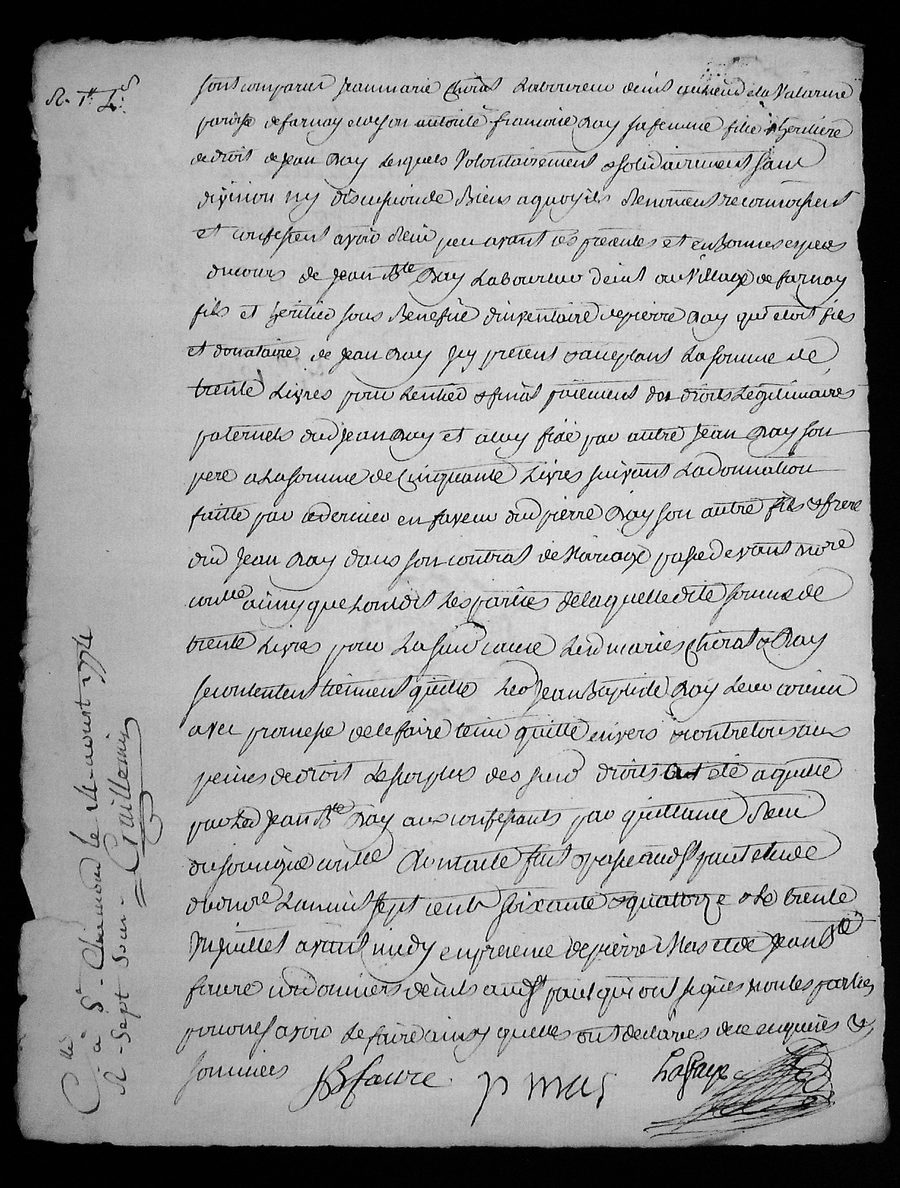 R. 1# 4s
sont comparus Jean marie Chirat Laboureur demt au lieu de la Valarine
paroisse de farnay et de son autorité francoise Ray sa femme fille & heritiere
de droit de Jean Ray Lesquels Volontairement & solidairement sans
division ny discussion de Biens a quoy ils Renoncent reconnoissent
et confessent avoir Reçu peu avant ces presentes et en bonnes especes
du cours de Jean Bte Ray Laboureur demt au Village de farnay
fils et heritier sous Benefice d'inventaire de pierre Ray qui etoit fils
et donataire de Jean Ray Icy présent & acceptant La somme de
trente Livres pour L'entier & final paiement des droits Legitimaires
paternels dud Jean Ray et a luy fixé par autre Jean Ray son
pere a La somme de Cinquante Livres suivant La donnation
faitte par ce dernier en faveur dud pierre Ray son autre fils & frere
dud Jean Ray dans son contrat de Mariage passé devant nore
ainsy que L'ont dit Les parties de laquelle ditte somme de
trente Livres pour La susd cause Lesd mariés Chirat & Ray
se contentent tiennent quitte Led Jean Baptiste Ray
avec promesse de le faire tenir quitte envers & contre tous aux
peines de droit Le surplus des susd droits ont été acquitté
par Led Jean Bte Ray aux confessants par quittance Reçu
du soussigné Dont acte fait & passé aud St paul etude
du nore L'an mil sept cents soixante & quatorze & Le trente
Juillet avant midy en presence de pierre Mas et de Jean Bte
faure cordonniers demts aud St paul qui ont signés non les parties
pour ne scavoir Le faire ainsy quelles ont declarées de ce enquises &
sommées
JB faure p mas Lafaye
Cllé a St Chamond le 14 aoust 1774
R. Sept sous - Guillemin